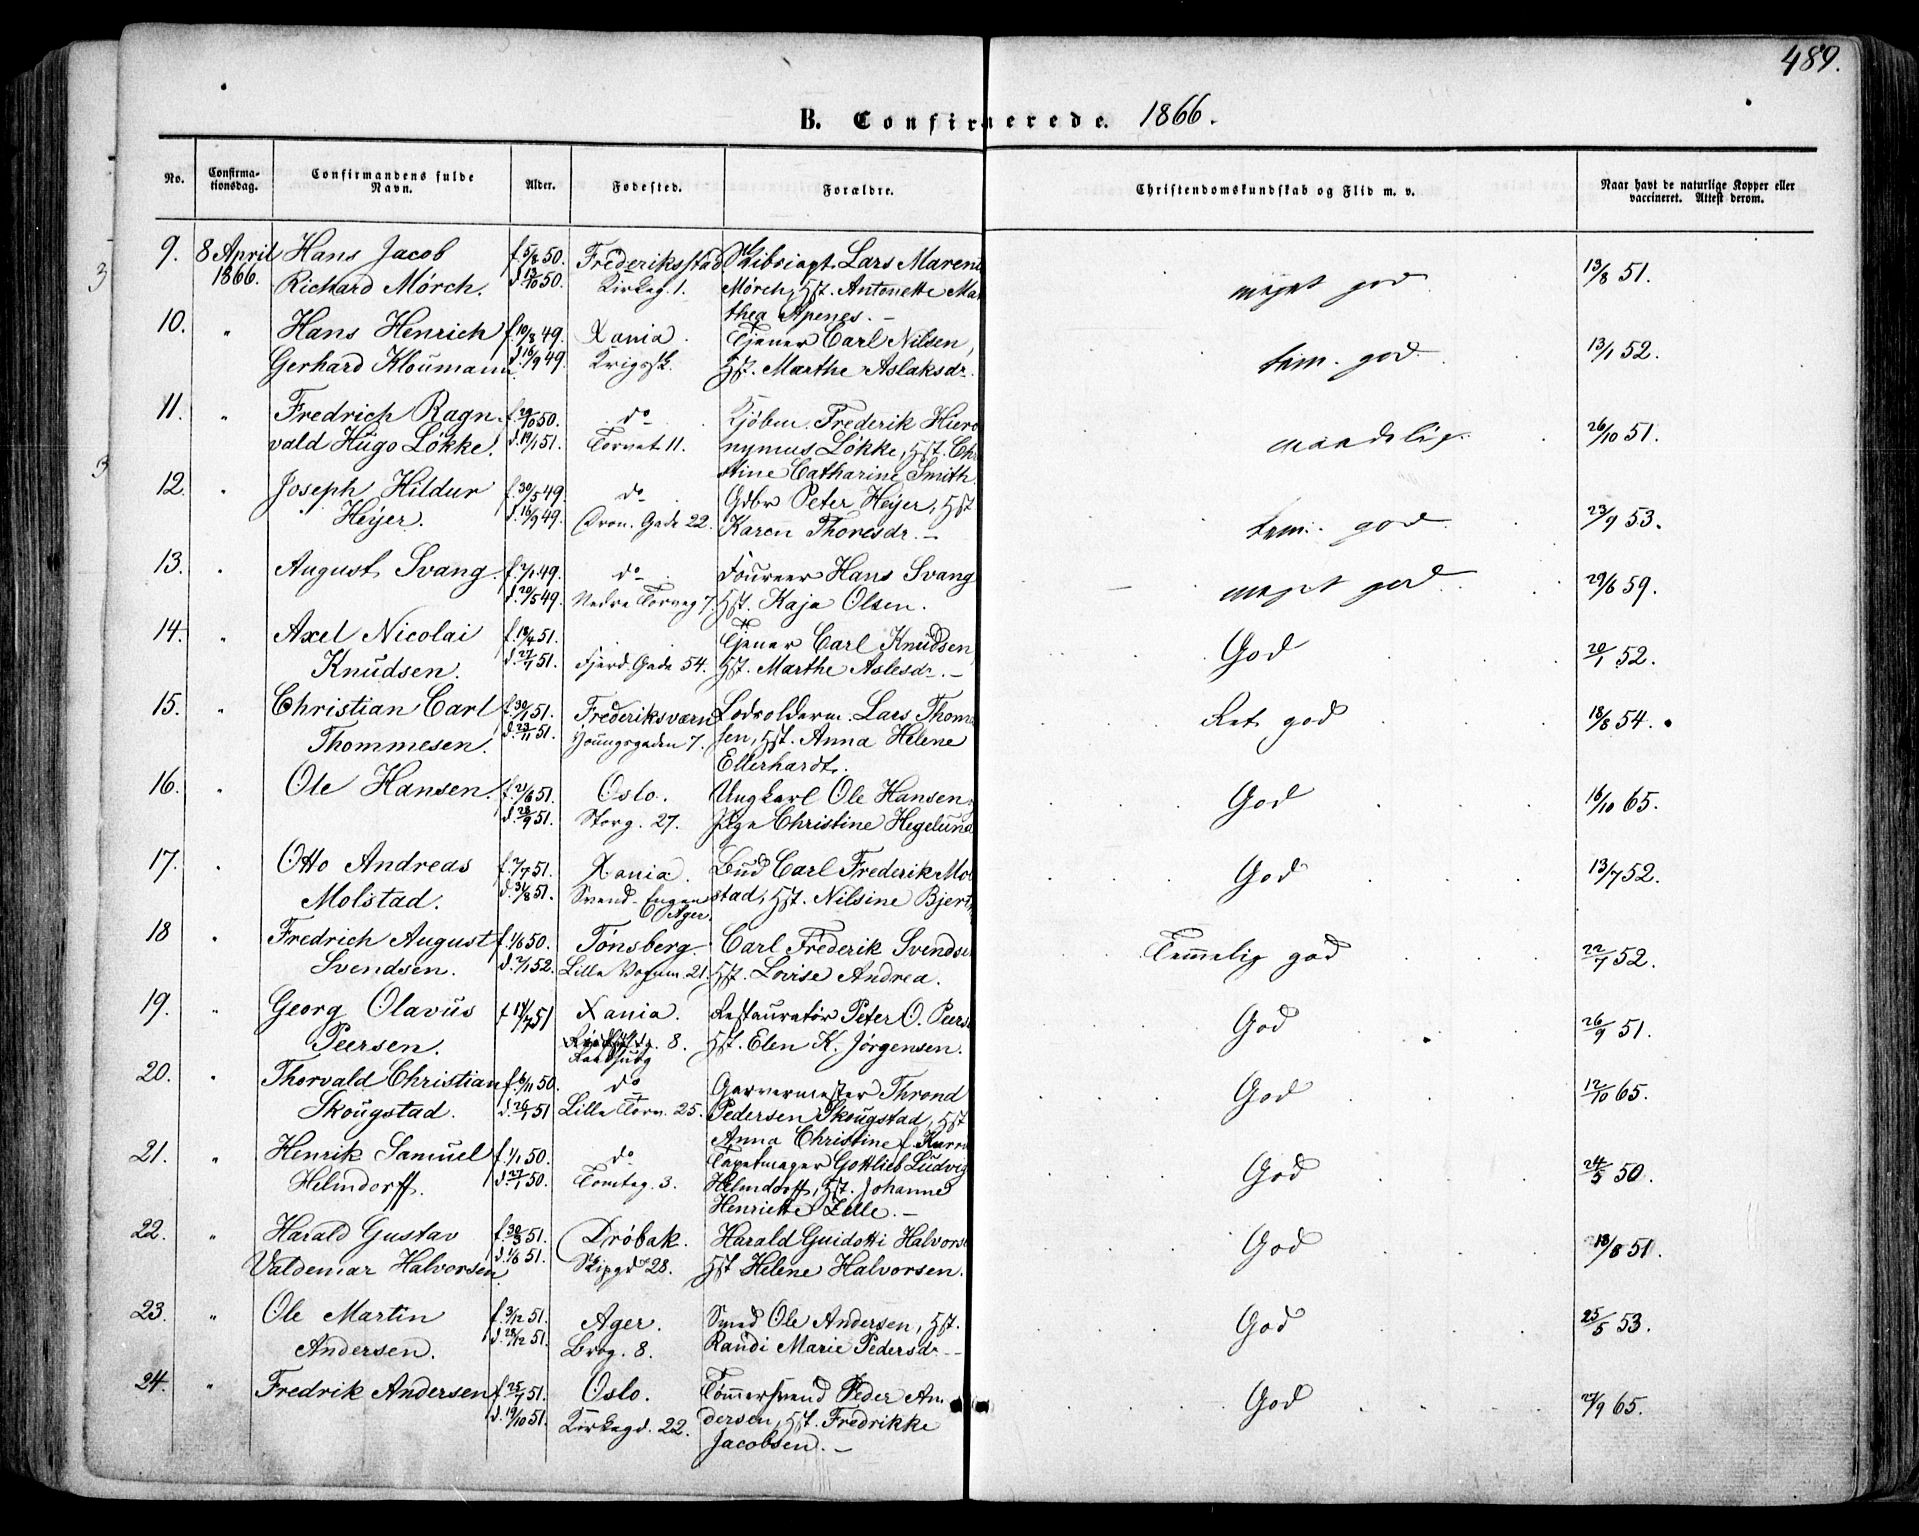 489.
B. Confirmerede. 1866.
No.
Confirma-
tionsdag.
Confirmandens fulde
Navn.
Alder.
Fødested.
Forældre.
Christendomskundskab og Flid m. v.
Naar havt de naturlige Kopper eller
vaccineret. Attest derom.
9. 8 April Hans Jacob f. 5/8 50. Frederiksstad Lars
1866. Richard Mörch. d. 13/10 50. Kirkeg. 1. Mörch, Hst. Antonette Ma
meget god 13/8 51.
thea Apenes. —
10. " Hans Henrich f. 19/8 49. Xania. Tjener Carl Nilsen,
Gerhard Kloumann. d. 16/9 49. Krigssk. Hst. Marthe Aslaksdr.
tem. god 13/1 52.
11. " Fredrich Ragn- f. 29/10 50. do Kjøbm. Frederik Hiero
vald Hugo Lökke. d. 19/1 51. Torvet 11. nymus Lökke, Hst. Chri
maadelig. 26/10 51.
stine Catharine Smith.
12. " Joseph Hildur f. 30/5 49. do Gdbr Peter Heyer, Hst
Heyer. d. 16/9 49. Dron. Gade 22. Karen Thoresdr. —
tem. god 23/9 53.
13. " August Svang. f. 2/1 49. do Foureer Hans Svang
d. 20/5 49. Nedre Torvg 7. Hst. Kaja Olsen.
meget god 29/6 59.
14. " Axel Nicolai f. 18/4 51. Tjener Carl Knudsen,
Knudsen. d. 27/7 51. Fjerd. Gade 54. Hst. Marthe Aslesdr. —
God 20/1 52.
15. " Christian Carl f. 30/1 51. Frederiksværn Lodsolderm. Lars Thom
Thommesen. d. 23/11 51. Youngsgaden 7. sen, Hst. Anna Helene
Ret god 18/8 54.
Ellerhardt.
16. " Ole Hansen. f. 21/6 51. Oslo. Ungkarl Ole Hansen,
d. 28/9 51. Storg. 27. Pige Christine Hegelund
God 16/10 65.
17. " Otto Andreas f. 7/7 51. Xania. Bud Carl Frederik Mol
Molstad. d. 31/8 51. Svend-Engen stad, Hst. Nilsine Bjert
God 13/7 52.
Ager.
18 " Fredrich August f. 1/6 50. Tönsberg. Carl Frederik Svendse
Svendsen. d. 2/1 52. Lille Vognm. 21. Hst. Lovise Andrea.
Temmelig god 22/7 52.
19. " Georg Olavus f 14/7 51 Xania. Restauratör Peter O. Peerse
Peersen. 8. Hst. Elen K. Jörgensen.
God 26/9 51.
Raadhusg
20. " Thorvald Christian f. 6/11 50. do Garvermester Thrond
Skougstad. d. 26/1 51 Lille Torv. 25. Pedersen Skougstad, Hst
God 12/10 65.
Anna Christine f.
21. " Henrik Samuel f. 1/1 50. do Tapetmager Gottlieb Ludvig
Helmdorff. d. 27/1 50. Torvteg. 3. Helmdorff, Hst. Johanne
God 24/5 50.
Henriette Zelle. —
22. " Harald Gustav f. 30/3 51. Dröbak. Harald Guidotti Halvors
Valdemar Halvorsen d. 1/6 51. Skipgd 28. Hst Helene Halvorsen.
God 18/8 51.
23. " Ole Martin f. 3/12 51. Ager. Smed Ole Andersen, Hst.
Andersen. d. 28/12 51. Brog. 8. Randi Marie Pedersdr —
God 25/5 53.
24. " Fredrik Andersen f. 25/7 51. Oslo. Tömmersvend Peder An
d. 19/10 51. Kirkegd. 22. dersen, Hst. Fredrikke
God 27/9 65.
Jacobsen. —